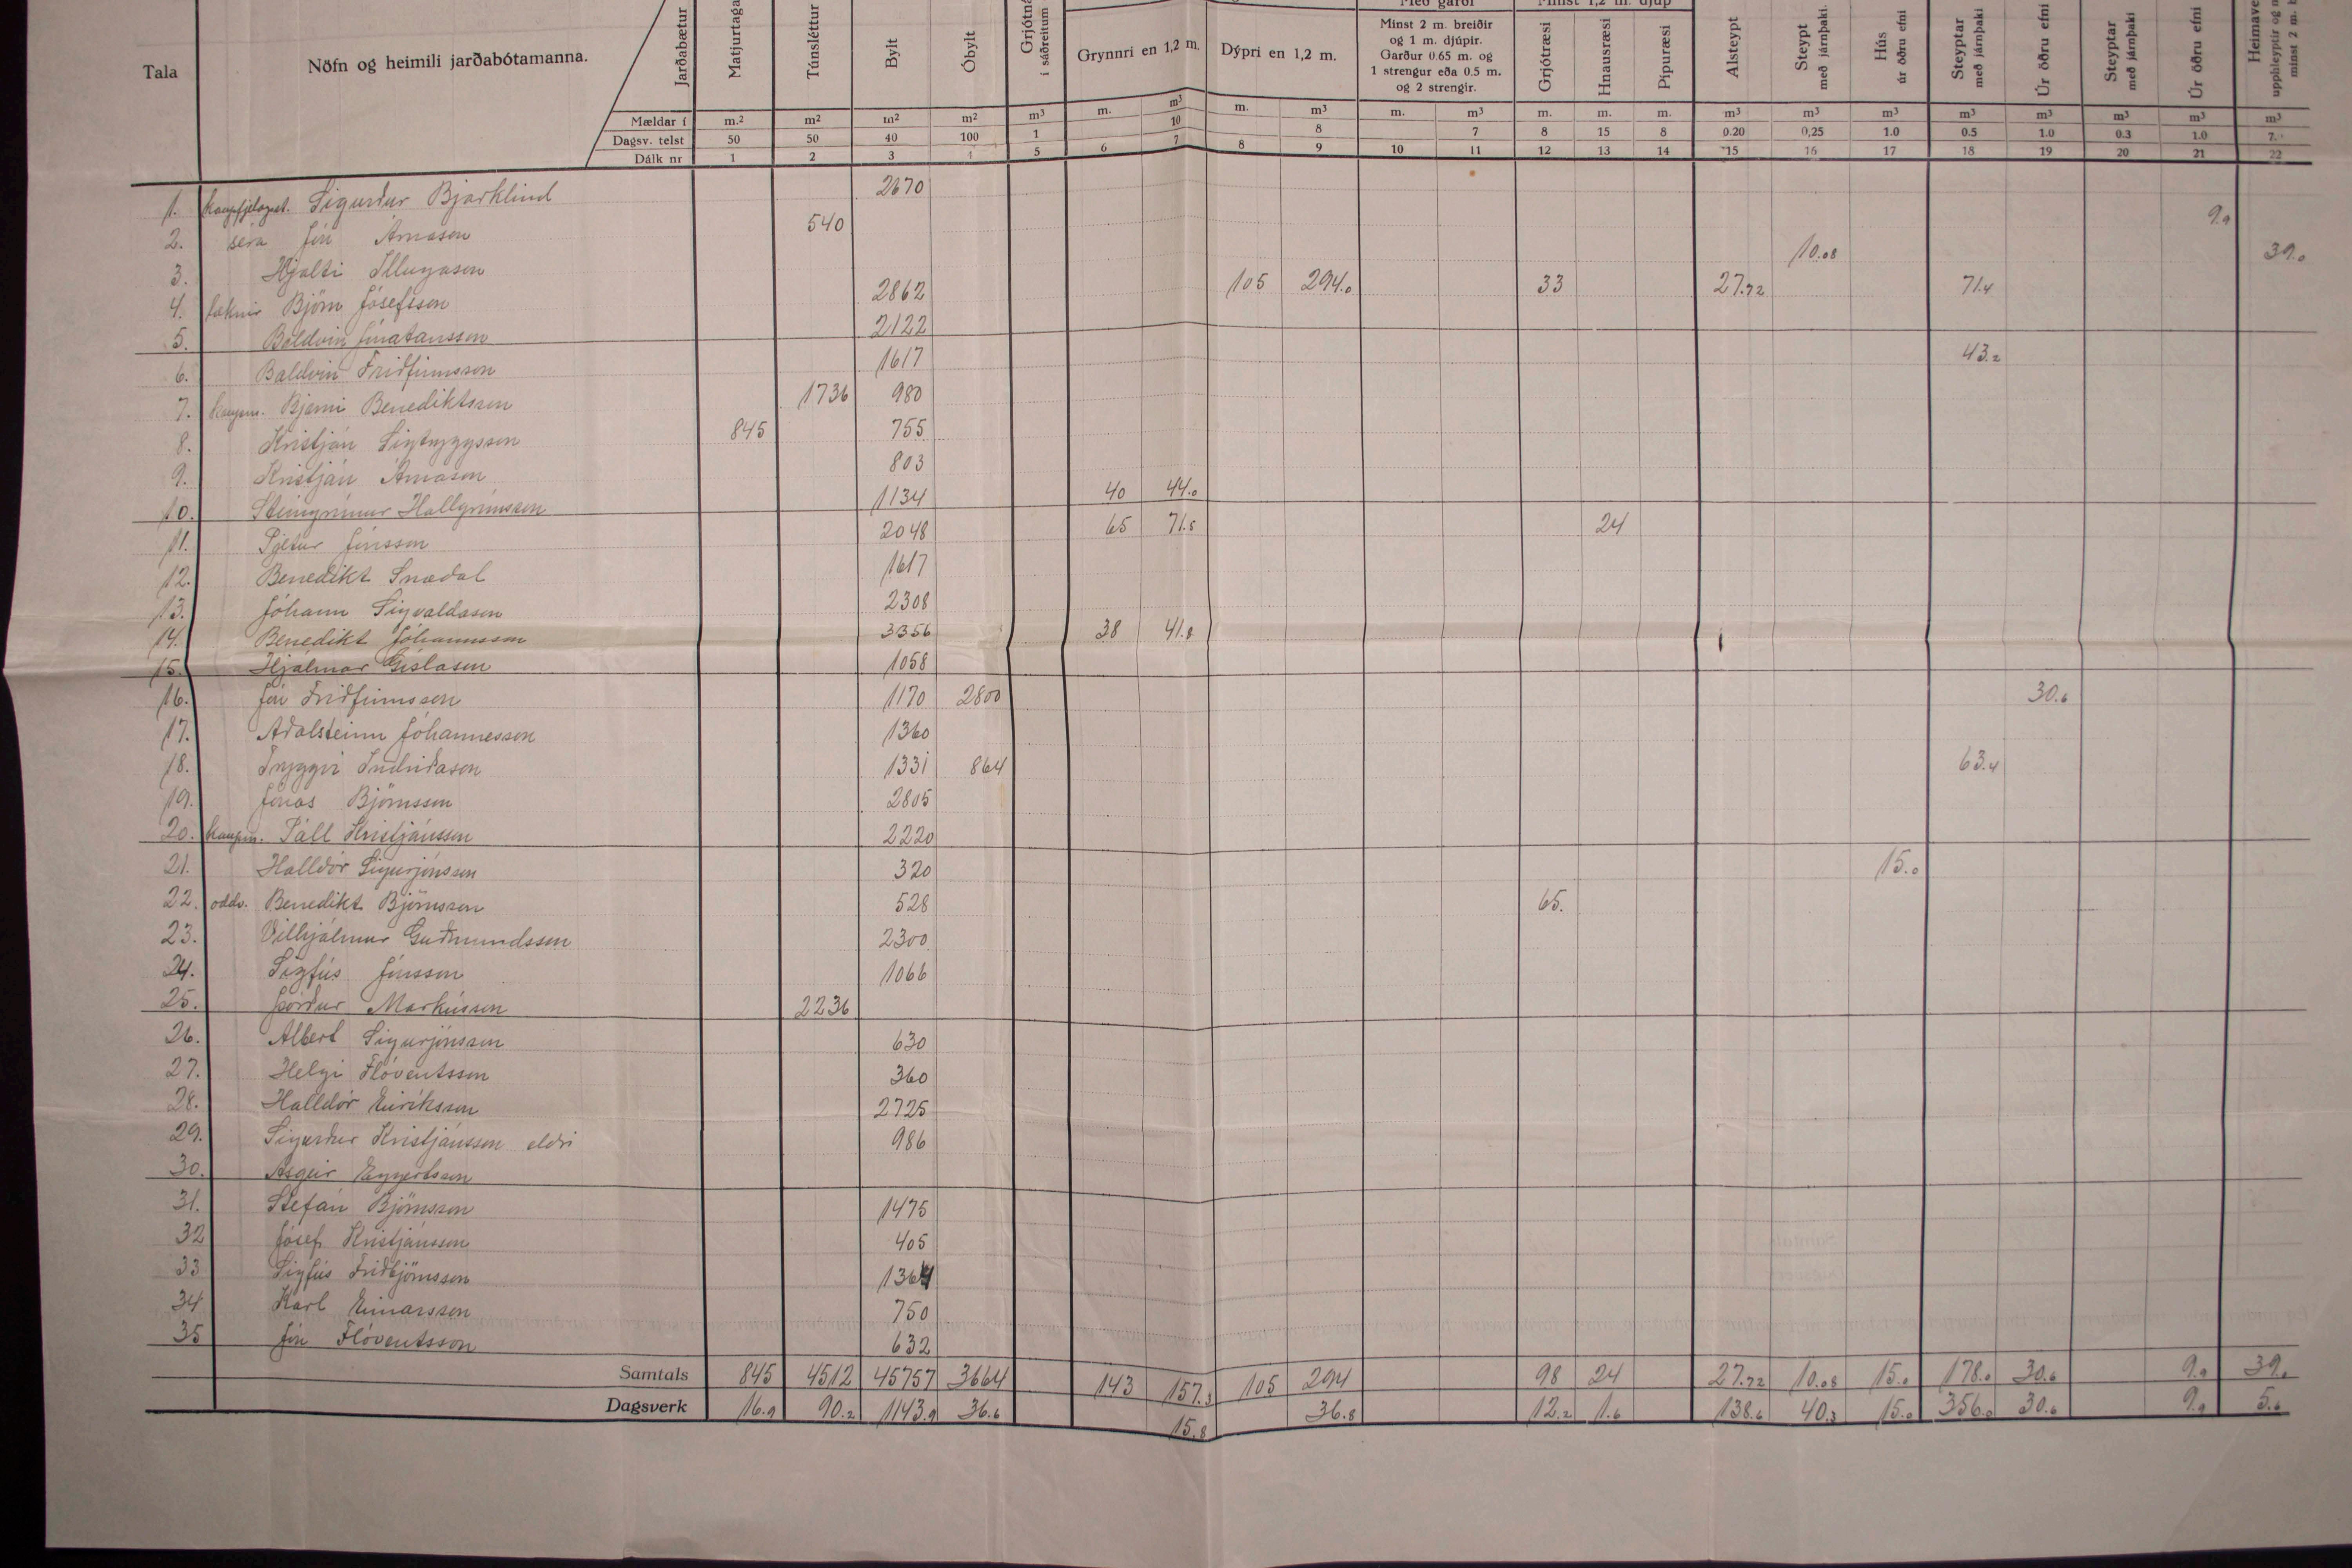 Með garði Minst 1,2 m. djúp
Tala Nöfn og heimili jarðabótamanna. Jarðabætur Matjurtaga Túnsléttur Bylt Óbylt Grjótná í sáðreitum Grynnri en 1,2 m. Dýpri en 1,2 m. Minst 2 m. breiðir og 1 m. djúpir. Garður 0.65 m. og 1 strengur eða 0.5 m. og 2 strengir. Grjótræsi Hnausræsi Pípuræsi Alsteypt Steypt með járnþaki. Hús úr öðru efni Steyptar með járnþaki Úr öðru efni Steyptar með járnþaki Úr öðru efni Heimave upphleyptir og m minst 2 m. b
Mældar í m.2 m2 m2 m2 m3 m. m3 m. m3 m. m3 m. m. m. m3 m3 m3 m3 m3 m3 m3 m3
Dagsv. telst 50 50 40 100 1 10 8 7 8 15 8 0.20 0,25 1.0 0.5 1.0 0.3 1.0 7.
Dálk nr 1 2 3 4 5 6 7 8 9 10 11 12 13 14 15 16 17 18 19 20 21 22
1. kaupfjelagsst. Sigurður Bjarklind 2670
2. séra Jón Árnason 540 9.9
3. Hjalti Illugason 10.08 39.0
4. læknir Björn Jósefsson 2862 105 294.0 33 27.72 71.4
5. Baldvin Jónatansson 2122
6. Baldvin Friðfinnsson 1617 43.2
7. kaupm. Bjarni Benediktsson 1736 980
8. Kristján Sigtryggsson 845 755
9. Kristján Árnason 803
10. Steingrímur Hallgrímsson 1134 40 44.0
11. Pjetur Jónsson 2048 65 71.5 24
12. Benedikt Snædal 1617
13. Jóhann Sigvaldason 2308
14. Benedikt Jóhannsson 3356 38 41.8
15. Hjálmar Gíslason 1058
16. Jón Friðfinnsson 1170 2800 30.6
17. Aðalsteinn Jóhannesson 1360
18. Tryggvi Indriðason 1331 864 63.4
19. Jónas Björnsson 2805
20. kaupm. Páll Kristjánsson 2220
21. Halldór Sigurjónsson 320 15.0
22. oddv. Benedikt Björnsson 528 65.
23. Vilhjálmur Guðmundsson 2300
24. Sigfús Jónsson 1066
25. Þórður Markússon 2236
26. Albert Sigurjónsson 630
27. Helgi Flóventsson 360
28. Halldór Eiríksson 2725
29. Sigurður Kristjánsson eldri 986
30. Ásgeir Eggertsson
31. Stefán Björnsson 1475
32 Jósef Kristjánsson 405
33 Sigfús Friðbjörnsson 1364
34 Karl Einarsson 750
35 Jón Flóventsson 632
Samtals 845 4512 45757 3664 143 157.3 105 294 98 24 27.72 10.08 15.0 178.0 30.6 9.9 39.0
Dagsverk 16.9 90.2 1143.9 36.6 15.8 36.8 12.2 1.6 138.6 40.3 15.0 356.0 30.6 9.9 5.6